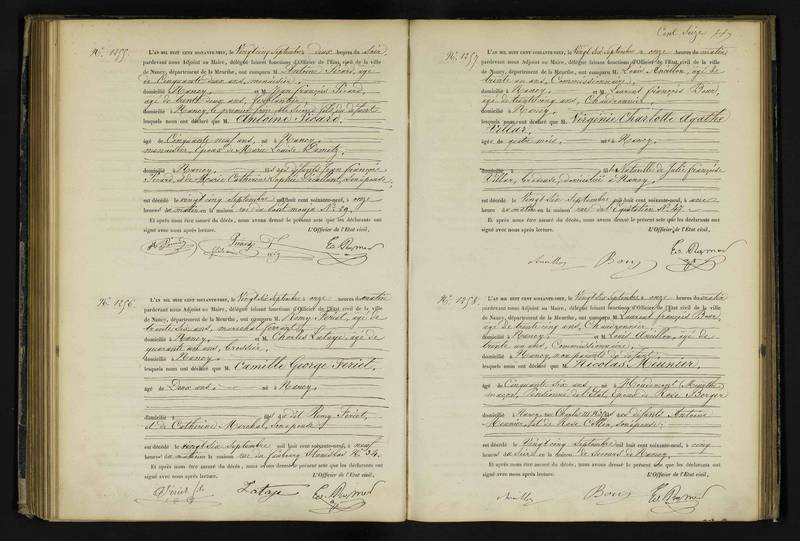 Cent Seize
N°. 1255.
L'AN MIL HUIT CENT SOIXANTE-NEUF, le Vingt cinq Septembre à deux heures du Soir
pardevant nous Adjoint au Maire, délégué faisant fonctions d'Officier de l'État civil de la ville
de Nancy, département de la Meurthe, ont comparu M. Antoine Picard, âgé
de Cinquante deux ans, menuisier,
domicilié à Nancy, et M. Jean François Picard,
âgé de trente cinq ans, ferblantier,
domicilié à Nancy, le premier frère, le second fils du défunt
lesquels nous ont déclaré que M. Antoine Picard.
âgé de Cinquante neuf ans, né à Nancy.
menuisier, Epoux de Marie Louise
domicilié à Nancy. fils des défunts Jean François
Picard, et de Marie Catherine Sophie
est décédé le vingt cinq Septembre mil huit cent soixante-neuf, à onze
heures du matin en la maison rue du haut
Et après nous être assuré du décès, nous avons dressé le présent acte que les déclarants ont
signé avec nous après lecture. L'Officier de l'État civil,
Picard
N°. 1256.
L'AN MIL HUIT CENT SOIXANTE-NEUF, le Vingt six Septembre à onze heures du matin
pardevant nous Adjoint au Maire, délégué faisant fonctions d'Officier de l'État civil de la ville
de Nancy, département de la Meurthe, ont comparu M. Remy Feriet, âgé de
trente six ans, maréchal ferrant,
domicilié à Nancy, et M. Charles Lataye, âgé de
quarante un ans, brossier,
domicilié à Nancy.
lesquels nous ont déclaré que M. Camille George Feriet.
âgé de Deux ans. né à Nancy.
domicilié à fils de dit Remy Feriet,
et de Catherine Marchal, son épouse.
est décédé le vingt six Septembre mil huit cent soixante-neuf, à neuf
heures du matin en la maison rue du faubourg Stanislas N° 34.
Et après nous être assuré du décès, nous avons dressé le présent acte que les déclarants ont
signé avec nous après lecture. L'Officier de l'État civil,
Fériet Lataye
N°. 1257.
L'AN MIL HUIT CENT SOIXANTE-NEUF, le Vingt six Septembre à onze heures du matin
pardevant nous Adjoint au Maire, délégué faisant fonctions d'Officier de l'État civil de la ville
de Nancy, département de la Meurthe, ont comparu M. Louis Ancillon, âgé de
trente un ans, Commissionnaire,
domicilié à Nancy, et M. Laurent François
âgé de trente cinq ans, Chaudronnier,
domicilié à Nancy.
lesquels nous ont déclaré que M. Virginie Charlotte Agathe
Villar,
âgé de quatre mois. né à Nancy.
domicilié à fille Naturelle de Julie Françoise
Villar, domiciliée à Nancy.
est décédé le Vingt Six Septembre mil huit cent soixante-neuf, à
heures du matin en la maison rue de l'Equitation N° 47.
Et après nous être assuré du décès, nous avons dressé le présent acte que les déclarants ont
signé avec nous après lecture. L'Officier de l'État civil,
N°. 1258.
L'AN MIL HUIT CENT SOIXANTE-NEUF, le Vingt six Septembre à onze heures du matin
pardevant nous Adjoint au Maire, délégué faisant fonctions d'Officier de l'État civil de la ville
de Nancy, département de la Meurthe, ont comparu M. Laurent François
âgé de trente cinq ans, Chaudronnier,
domicilié à Nancy, et M. Louis Ancillon, âgé de
trente un ans, Commissionnaire,
domicilié à Nancy, non parents du défunt,
lesquels nous ont déclaré que M. Nicolas Meunier.
âgé de Cinquante Six ans, né à (Meurthe)
Pensionné de l'Etat, Epoux de Rose Berger
domicilié à Nancy, rue Charles III fils des défunts Antoine
Meunier, et de Rose Collin, son épouse;
est décédé le Vingt cinq Septembre mil huit cent soixante-neuf, à cinq
heures du Soir en la maison de Secours de Nancy.
Et après nous être assuré du décès, nous avons dressé le présent acte que les déclarants ont
signé avec nous après lecture. L'Officier de l'État civil,